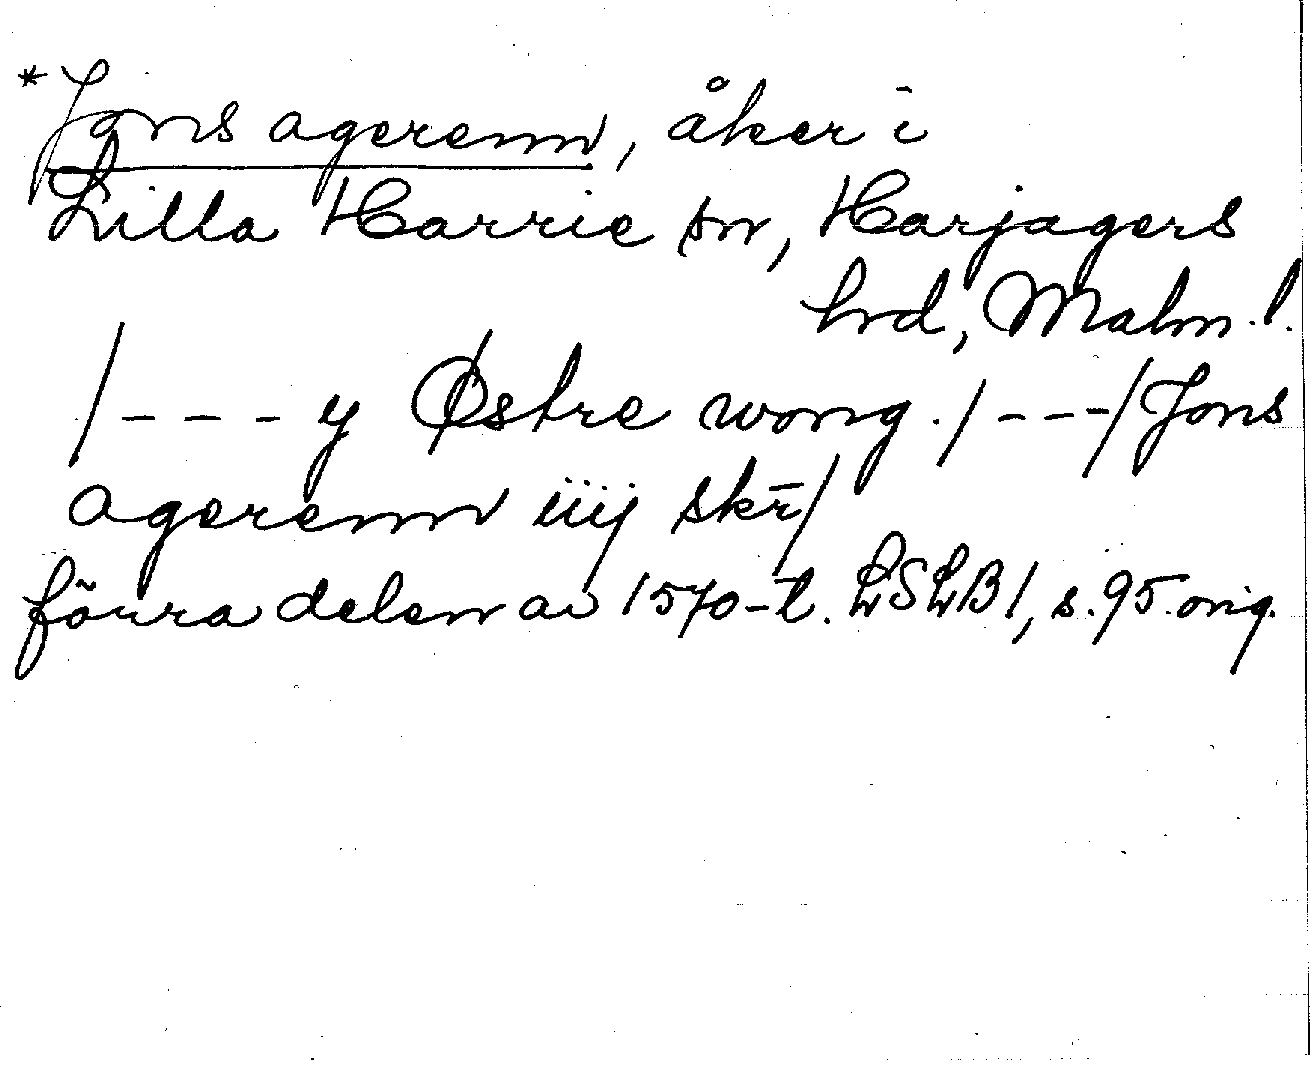 *Jons agerenn, åker i
Lilla Harrie sn, Harjagers
hrd, Malm. l.
/ - - - y Østre wong. / - - - / Jons
agerenn iiij skr̄ /
förra delen av 1570-t. LSLB1, s. 95. orig.